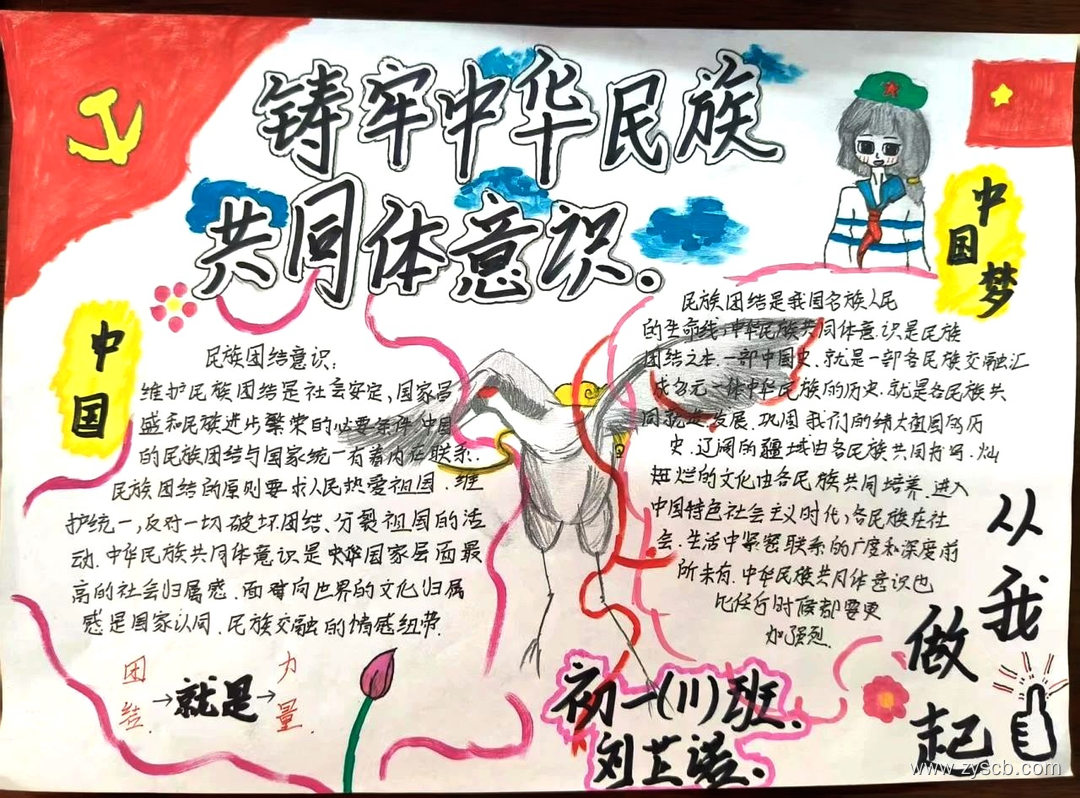 铸牢中华民族
共同体意识.
中国
中国梦
民族团结意识:
维护民族团结是社会安定,国家昌
盛和民族进步繁荣的必要条件.中国
的民族团结与国家统一有着内在联系.
民族团结的原则要求人民热爱祖国.维
护统一,反对一切破坏团结、分裂祖国的活
动.中华民族共同体意识是国家层面最
高的社会归属感.面向世界的文化归属
感是国家认同.民族交融的情感纽带.
团结→就是→力量.
民族团结是我国各族人民
的生命线,中华民族共同体意识是民族
团结之本.一部中国史.就是一部各民族交融汇
成多元一体中华民族的历史.就是各民族共
同发展.巩固我们的伟大祖国的历
史.辽阔的疆域由各民族共同书写.灿
烂的文化由各民族共同培养.进入
中国特色社会主义时代,各民族在社
会.生活中紧密联系的广度和深度前
所未有.中华民族共同体意识也
比任何时候都要更
加强烈.
从我
做起
初一(11)班.
刘芷诺.
www.zyscb.com